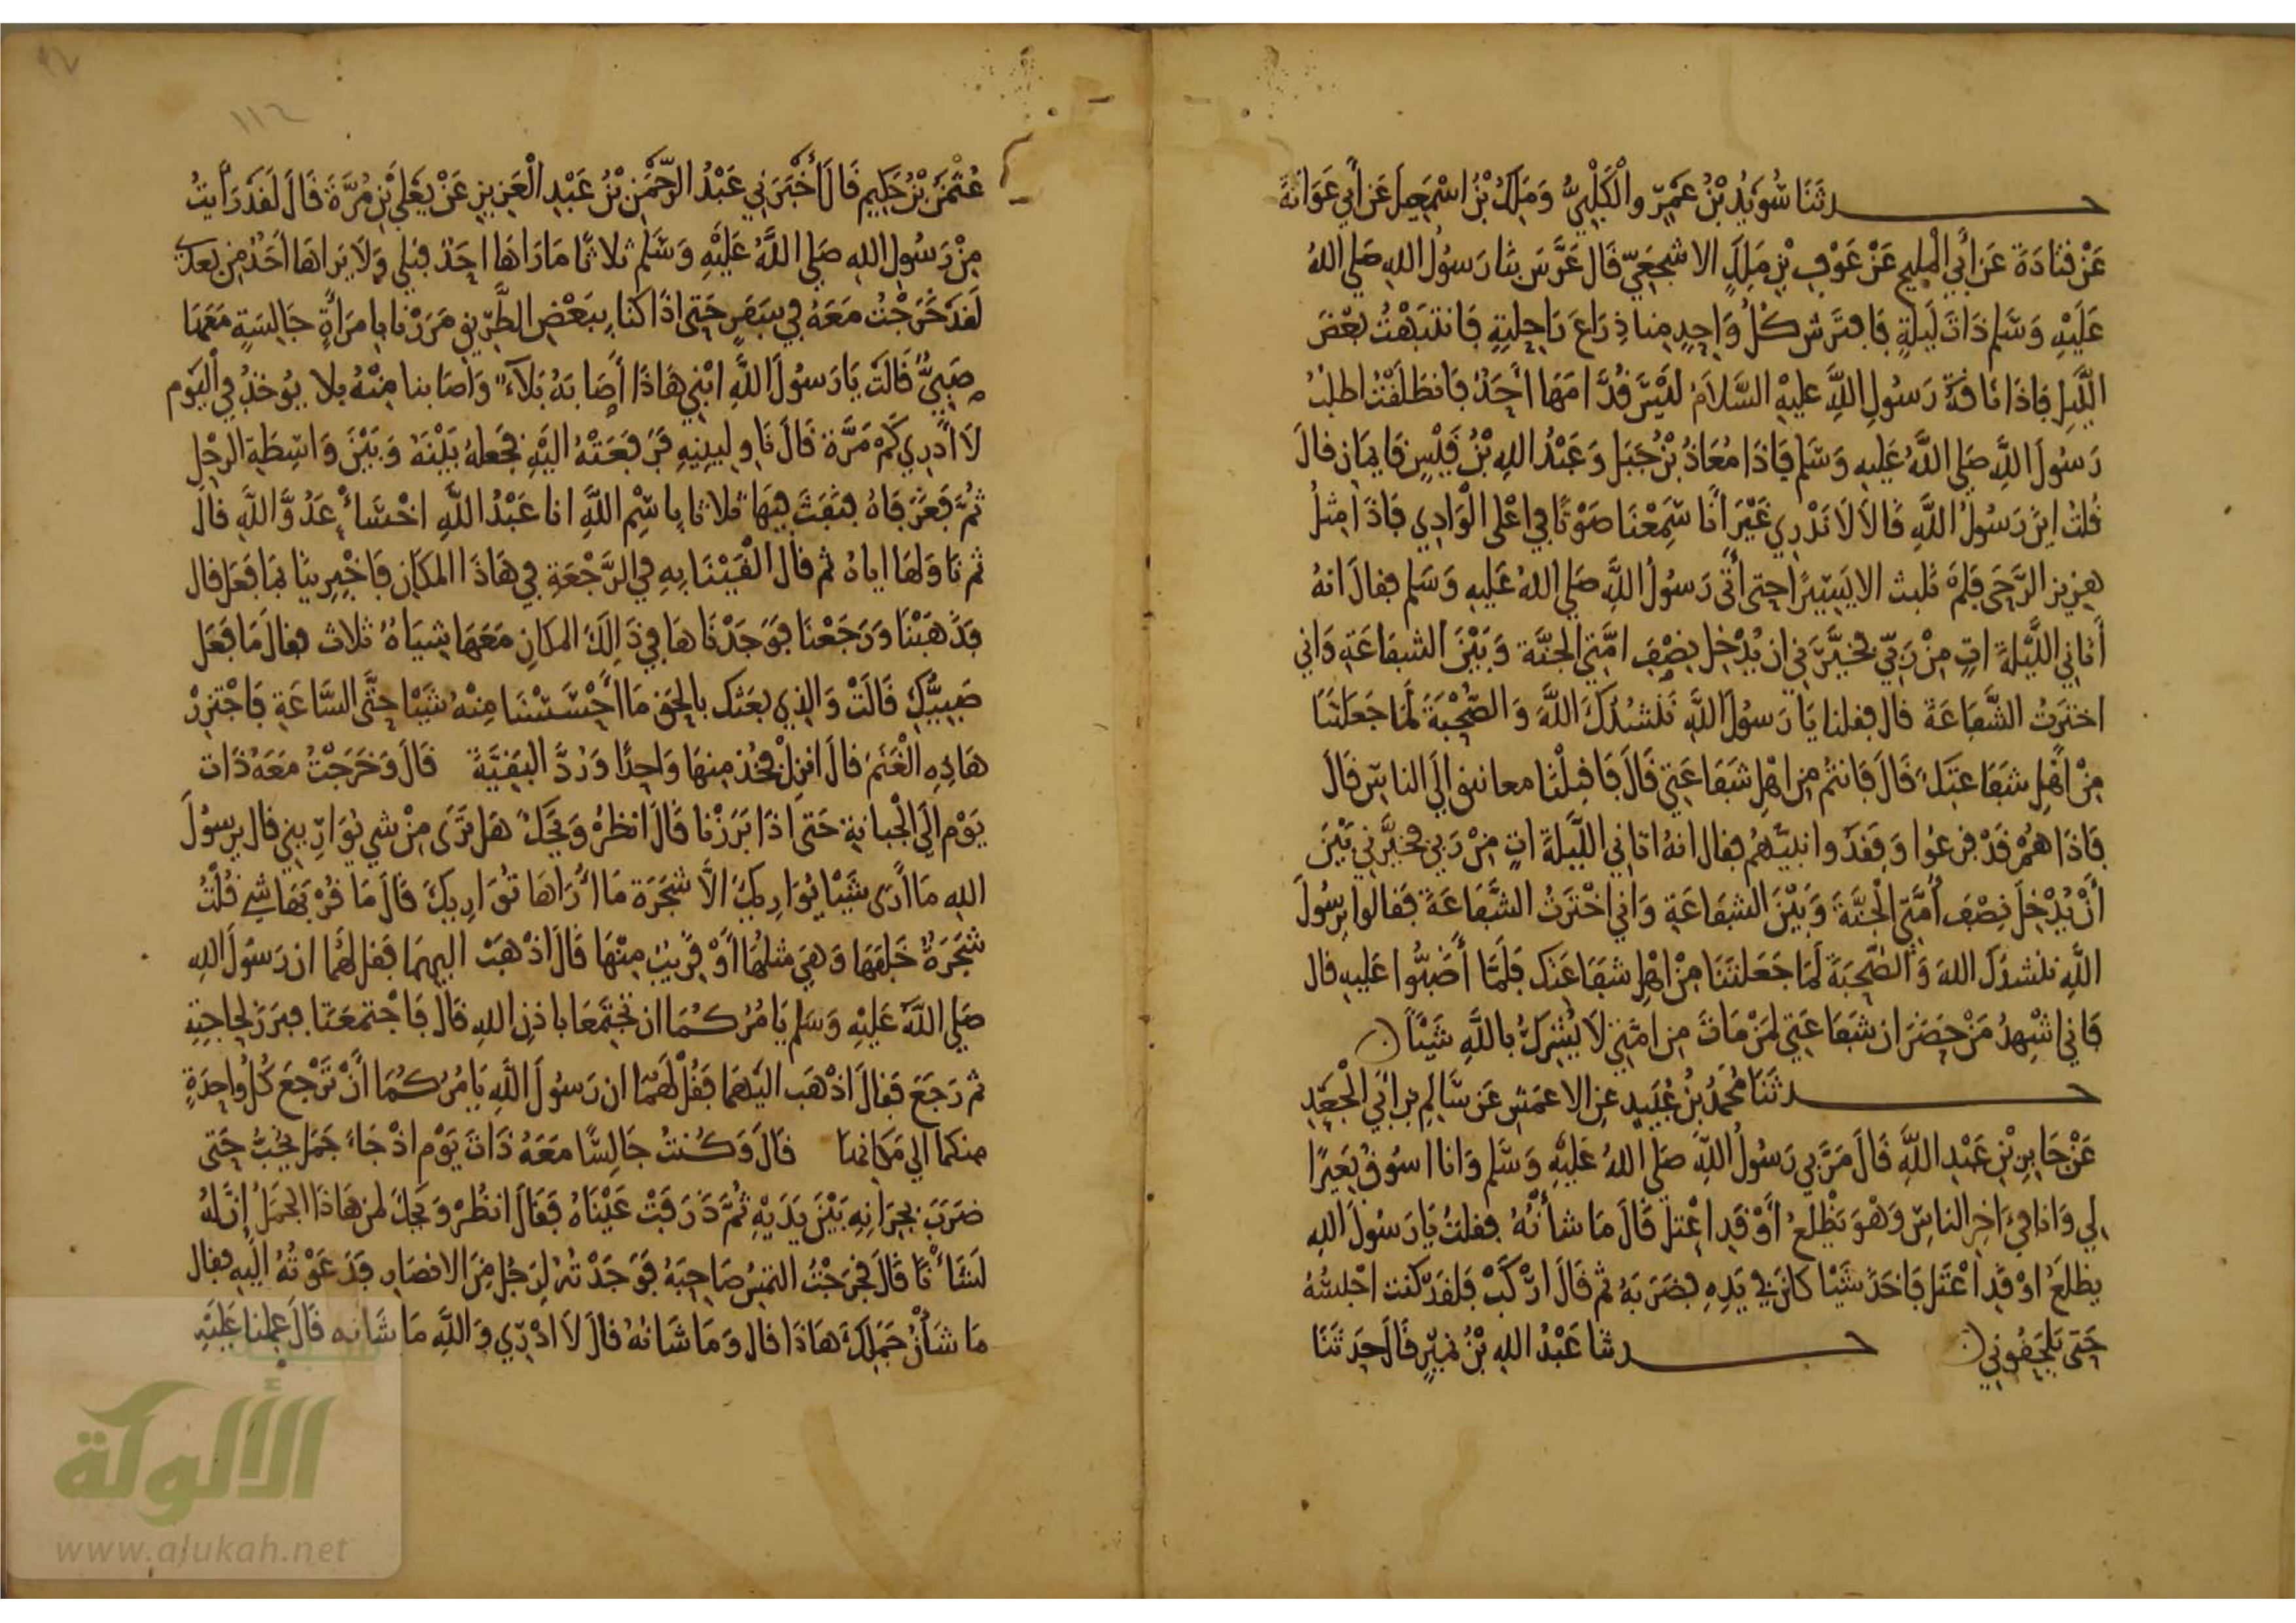 حدثنا سُوَيْدُ بْنُ عَمْرٍو الْكَلْبِيُّ وَمَلِكُ بْنُ اسْمَعِيلَ عَن أَبِي عَوَانَةَ
عَنْ قَتَادَةَ عَن أَبِي الْمليح عَنْ عَوْفِ بْنِ مَلِكٍ الاشْجَعِيِّ قَالَ عَرَّسَ بنَا رَسُولُ اللهِ صَلى اللهُ
عَلَيْهِ وَسَلم ذَاتَ لَيلَةٍ فَافترَش كُلُّ وَاحِدٍ منا ذِرَاعَ رَاحِلتِهِ فَانتَبَهْتُ بَعْضَ
اللَّيلِ فَاذَا نَاقَةُ رَسُولِ اللَّهِ عليْهِ السَّلَامُ لَيْسَ قُدَّامَهَا أَحَدٌ فَانطَلَقْتُ اطلبُ
رَسُولَ اللَّهِ صَلى اللَّهُ عَليهِ وَسَلم فَاذَا مُعَاذُ بْنُ جَبَل وَعَبْدُ اللهِ بْنُ قَيْسٍ قَايمَان قالَ
قُلتُ ايْنَ رَسُولُ اللَّهِ قَالَا لَا نَدْرِي غَيْرَ انَّا سَمِعْنَا صَوْتًا فِي اعْلى الْوَادِي فَاذَا مِثلُ
هزِيز الرَّحَى فَلمْ نلبث الا يَسِيرًا حتى أَتَى رَسُولُ اللَّهِ صَلى اللهُ عَليهِ وَسَلم فقالَ انهُ
أَتَانِي اللَّيْلةَ اتٍ مِنْ رَبِّي فخَيَّرَنِي ان يُدْخِل نِصْفَ امَّتِي الجنَّة وَبَيْنَ الشفَاعَةِ وَانِي
اختَرتُ الشَّفَاعَةَ قال فقلنا يَا رَسُولَ اللَّهِ نَنْشُدُكَ اللَّهَ وَالصُّحْبَةَ لَمَا جَعَلتَنَا
مِنْ اهْلِ شَفَاعتِكَ قَالَ فَانتُم مِن اهْلِ شَفَاعَتِي قَالَ فَاقبلْنا معانيق الَى الناسِ قَالَ
فَاذَا هُمْ قَدْ فزِعُوا وَفقَدُوا نبيَّهُم فقال انهُ اتاني اللَّيْلَةَ اتٍ مِنْ رَبي فخيَّرَنِي بَيْنَ
أَنْ يُدْخِلَ نِصْفَ أُمَّتِي الْجَنَّةَ وَبَيْنَ الشفَاعَةِ وَانِي اخْتَرتُ الشَّفَاعَةَ فَقالوا يرَسُولَ
اللَّهِ ننشدُكَ اللهَ وَالصُّحبَةَ لَمَا جَعَلتَنَا مِنْ اهْلِ شفَاعَتك فَلَمَّا أَضَبُّوا عَليهِ قال
فَاني اشْهدُ مَنْ حضَرَ ان شفَاعَتِي لمَنْ مَاتَ مِن امَّتِي لَا يُشْرِكُ بِاللَّهِ شَيْئًا
حدثَنَا مُحَمَّدُ بْنُ عُبَيدٍ عن الاعمَش عَن سَالم بن ابِي الْجَعْدِ
عَنْ جَابِرِ بْنِ عَبْدِ اللَّهِ قَالَ مَرَّ بِي رَسُولُ اللَّهِ صَلى اللهُ عَليْهِ وَسَلم وَانا اسُوقُ بَعِيرًا
لِي وَانا في ءَاخِر الناسِ وَهْوَ يَظْلَعُ أَوْ قَد اعْتلَّ قَالَ مَا شَأْنُهُ فقلتُ يَا رَسُولَ اللهِ
يظلَعُ اوْ قد اعْتَلّ فَاخَذَ شَيْئا كان في يَدِهِ فضرَبَهُ ثم قالَ ارْكَبْ فَلقَدْ كنت احْبسُهُ
حَتى يَلحَقُونِي حدثنا عَبْدُ اللهِ بْنُ نمَيْرٍ قالَ حَدثَنَا
عُثْمَنُ بْنُ حَكِيمٍ قَالَ أَخْبَرَنِي عَبْدُ الرَّحْمَنِ بْنُ عَبْدِ الْعَزِيزِ عَنْ يَعْلَى بْنِ مُرَّةَ قَالَ لَقَدْ رَأَيتُ
مِنْ رَسُولِ اللهِ صَلى اللَّهُ عَليْهِ وَسَلم ثلَاثًا مَا رَاهَا احَدٌ قبْلي وَلَا يَرَاهَا أَحَدٌ مِن بَعدي
لَقدْ خَرَجْتُ مَعَهُ في سَفَرٍ حَتى اذَا كنا بِبَعْضِ الطَّرِيقِ مَرَرْنا بِامْرَأَةٍ جَالِسَةٍ مَعَهَا
صَبِيٌّ قَالَتْ يَا رَسُولَ اللَّهِ ابْنِي هَاذَا أَصَابَهُ بَلَاءٌ وَأصَابنا مِنْهُ بلَا يوْخَذُ في اليَوْم
لَا أَدْرِي كَمْ مَرَّة قَالَ نَاولينِيهِ فرَفَعَتْهُ اليْهِ فجَعلهُ بَيْنَهُ وَبَيْنَ وَاسِطَةِ الرحْلِ
ثُمَّ فَغَرَ فَاهُ فنفَثَ فِيهَا ثلَاثا بِاسْمِ اللَّهِ انا عَبْدُ اللَّهِ اخْسَأْ عَدُوَّ اللَّهِ قالَ
ثم نَاوَلهَا اياهُ ثم قالَ الْقَيْنَا بِهِ فِي الرَّجْعَةِ في هَاذَا المكَانِ فَاخْبِرِينا بمَا فَعَل قال
فَذَهَبْنَا وَرَجَعْنَا فوَجَدْنَاهَا في ذَالِكَ المكانِ مَعَهَا شيَاهٌ ثلاث فقال مَا فَعَل
صَبِيُّكِ قَالَتْ وَالذي بعَثكَ بالحَق مَا احْسَسْنَا مِنْهُ شَيْئا حتَّى السَّاعَةِ فَاجْتزِرْ
هَاذِهِ الْغَنَمَ قالَ انزِلْ فخُذ مِنهَا وَاحِدًا وَرُدَّ البَقيَّةَ قَالَ وَخَرَجْتُ مَعَهُ ذَاتَ
يَوْم الَى الْجَبانةِ حَتى اذَا بَرَزْنا قَالَ انظرْ وَيْحَكَ هَل تَرَى مِنْ شي يُوَارِينِي قالَ يرَسُولَ
اللهِ مَا أَرَى شَيْئا يُوَارِيكَ الَّا شجَرَة مَا أُرَاهَا تُوَارِيكَ قَالَ مَا قُرْبَهَا شي قُلْتُ
شجَرَةٌ خَلفَهَا وَهِيَ مثلُهَا أَوْ قَرِيبٌ مِنْهَا قَالَ اذْهَبْ اليهمَا فَقل لهُمَا ان رَسُولَ اللهِ
صَلى اللَّهُ عَلَيْهِ وَسَلم يَامُرُكُمَا ان تجْتَمِعَا باذنِ اللهِ قَالَ فَاجْتمَعَتَا فبرَزَ لحاجَتِهِ
ثم رَجَعَ فَقالَ اذْهَب اليْهمَا فَقُلْ لَهُمَا ان رَسُولَ اللَّهِ يَامُرُكُمَا أَنْ تَرْجعَ كُلُّ واحِدَةٍ
منكما الى مَكَانهَا قَالَ وَكُنتُ جَالِسًا مَعَهُ ذَاتَ يَوْم اذْ جَاءَ جَمَلٌ يخُبُّ حَتى
ضرَبَ بجِرَانِهِ بَيْنَ يَدَيْهِ ثُمَّ ذَرَفَتْ عَيْنَاهُ فَقَالَ انظُرْ وَيحَكَ لمَن هَاذَا الجَمَلُ إِنَّ لَهُ
لَشَأْنًا قَالَ فخرَجْتُ التَمِسُ صَاحِبَهُ فَوَجَدْتُهُ لِرَجُلٍ مِنَ الانصَارِ فدَعَوْتُهُ الَيْهِ فقال
مَا شَأْنُ جَمَلِكَ هَاذَا قال وَمَا شَانُهُ قالَ لَا ادْرِي وَاللَّهِ مَا شَانُه قَالَ عَمِلنَا عَلَيْهِ
الألوكة
www.alukah.net